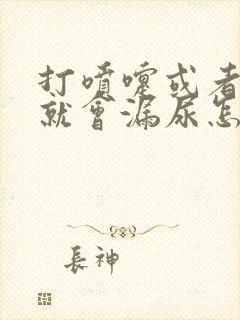 打噴嚏或者
就會漏尿怎
長神